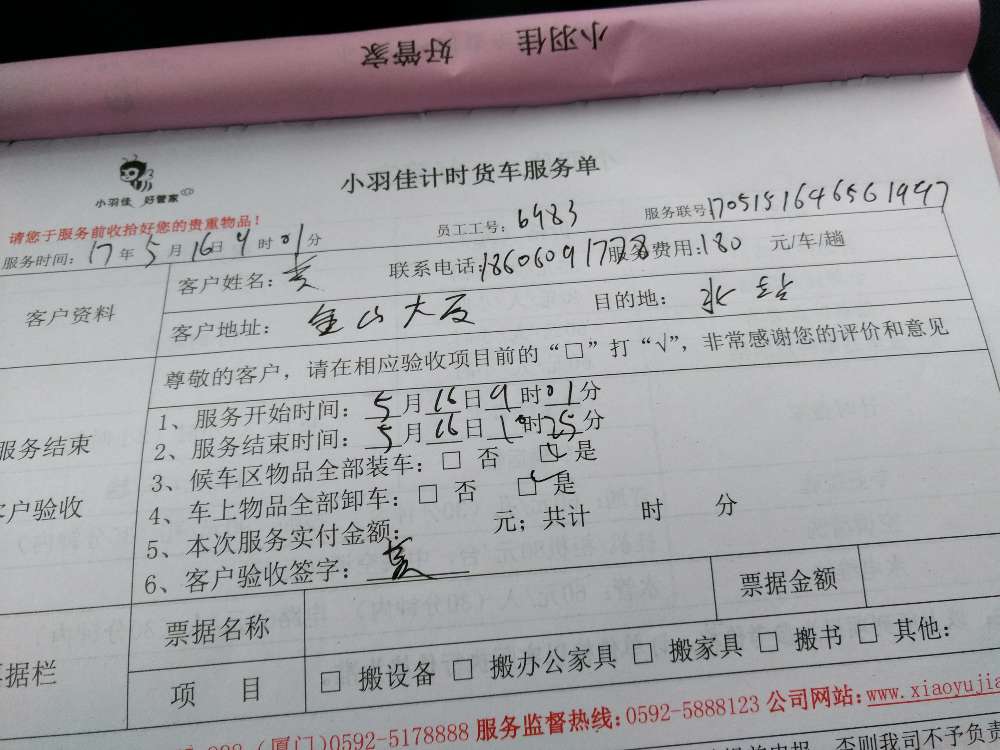 小羽佳 好管家
小羽佳 好管家
小羽佳计时货车服务单
请您于服务前收拾好您的贵重物品！
员工工号：6483
服务联号170515164656 1947
服务时间：17年5月16日9时01分
客户资料
客户姓名：
联系电话：
服务费用：180 元/车/趟
客户地址：金山大厦
目的地：
尊敬的客户，请在相应验收项目前的“□”打“√”，非常感谢您的评价和意见
服务结束
客户验收
1、服务开始时间：5月16日9时01分
2、服务结束时间：5月16日10时25分
3、候车区物品全部装车：□ 否 ☑ 是
4、车上物品全部卸车：□ 否 ☑ 是
5、本次服务实付金额： 元；共计 时 分
6、客户验收签字：
票据栏
票据名称
票据金额
项 目
□ 搬设备 □ 搬办公家具 □ 搬家具 □ 搬书 □ 其他：
(厦门)0592-5178888 服务监督热线:0592-5888123 公司网站:www.xiaoyujia
否则我司不予负责